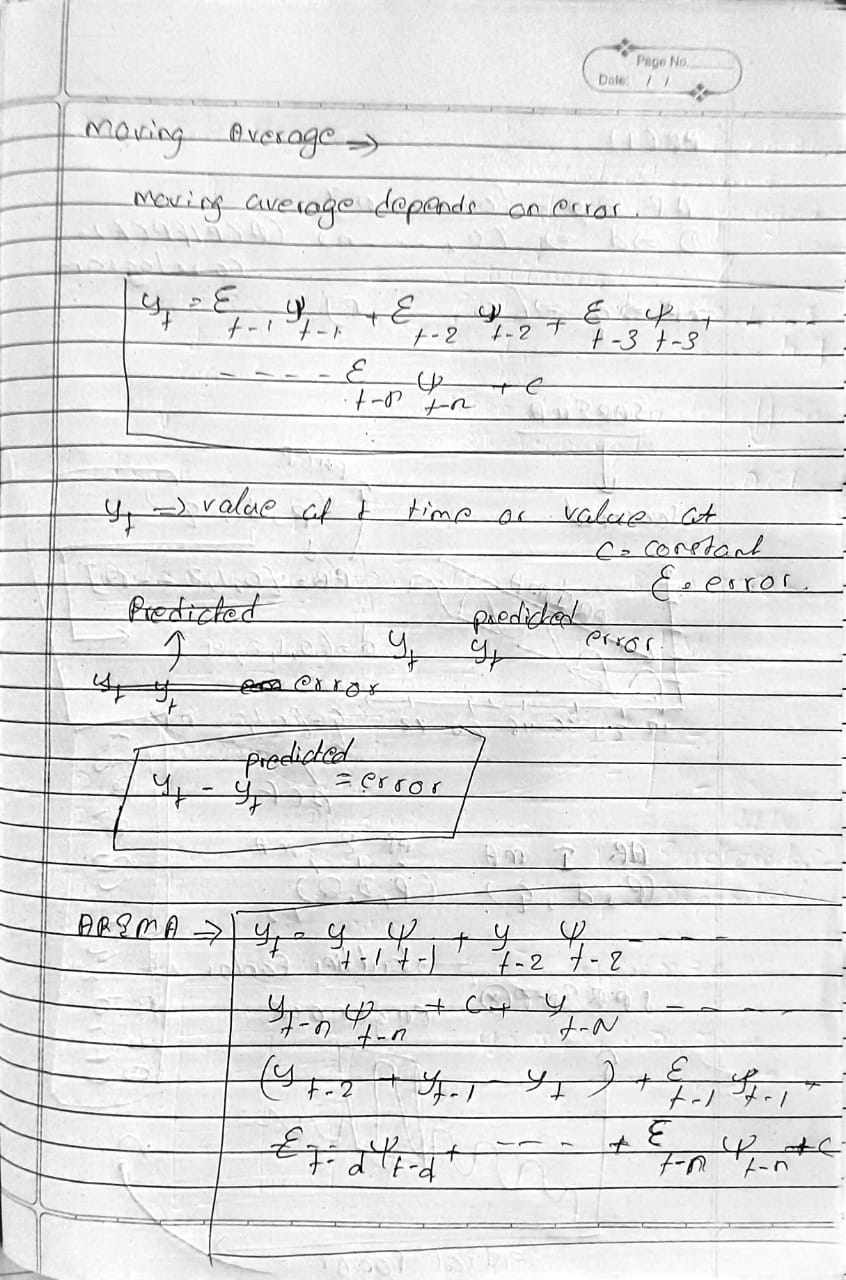 Page No.
Date: / /
Moving Average →
Moving average depends on error.
y_t = ε_{t-1} ψ_{t-1} + ε_{t-2} ψ_{t-2} + ε_{t-3} ψ_{t-3} + - - - -
- - - - ε_{t-n} ψ_{t-n} + c
y_t → value at t time or value at
c = constant
ε = error.
Predicted
↑
y_t y_t error
y_t y_t predicted error.
y_t - y_t predicted = error
ARIMA → y_t = y_{t-1} ψ_{t-1} + y_{t-2} ψ_{t-2} - - - -
y_{t-n} ψ_{t-n} + c + y_{t-N} - - - -
(y_{t-2} + y_{t-1} - y_t) + ε_{t-1} ψ_{t-1} +
ε_{t-d} ψ_{t-d} + - - - - + ε_{t-n} ψ_{t-n} + c